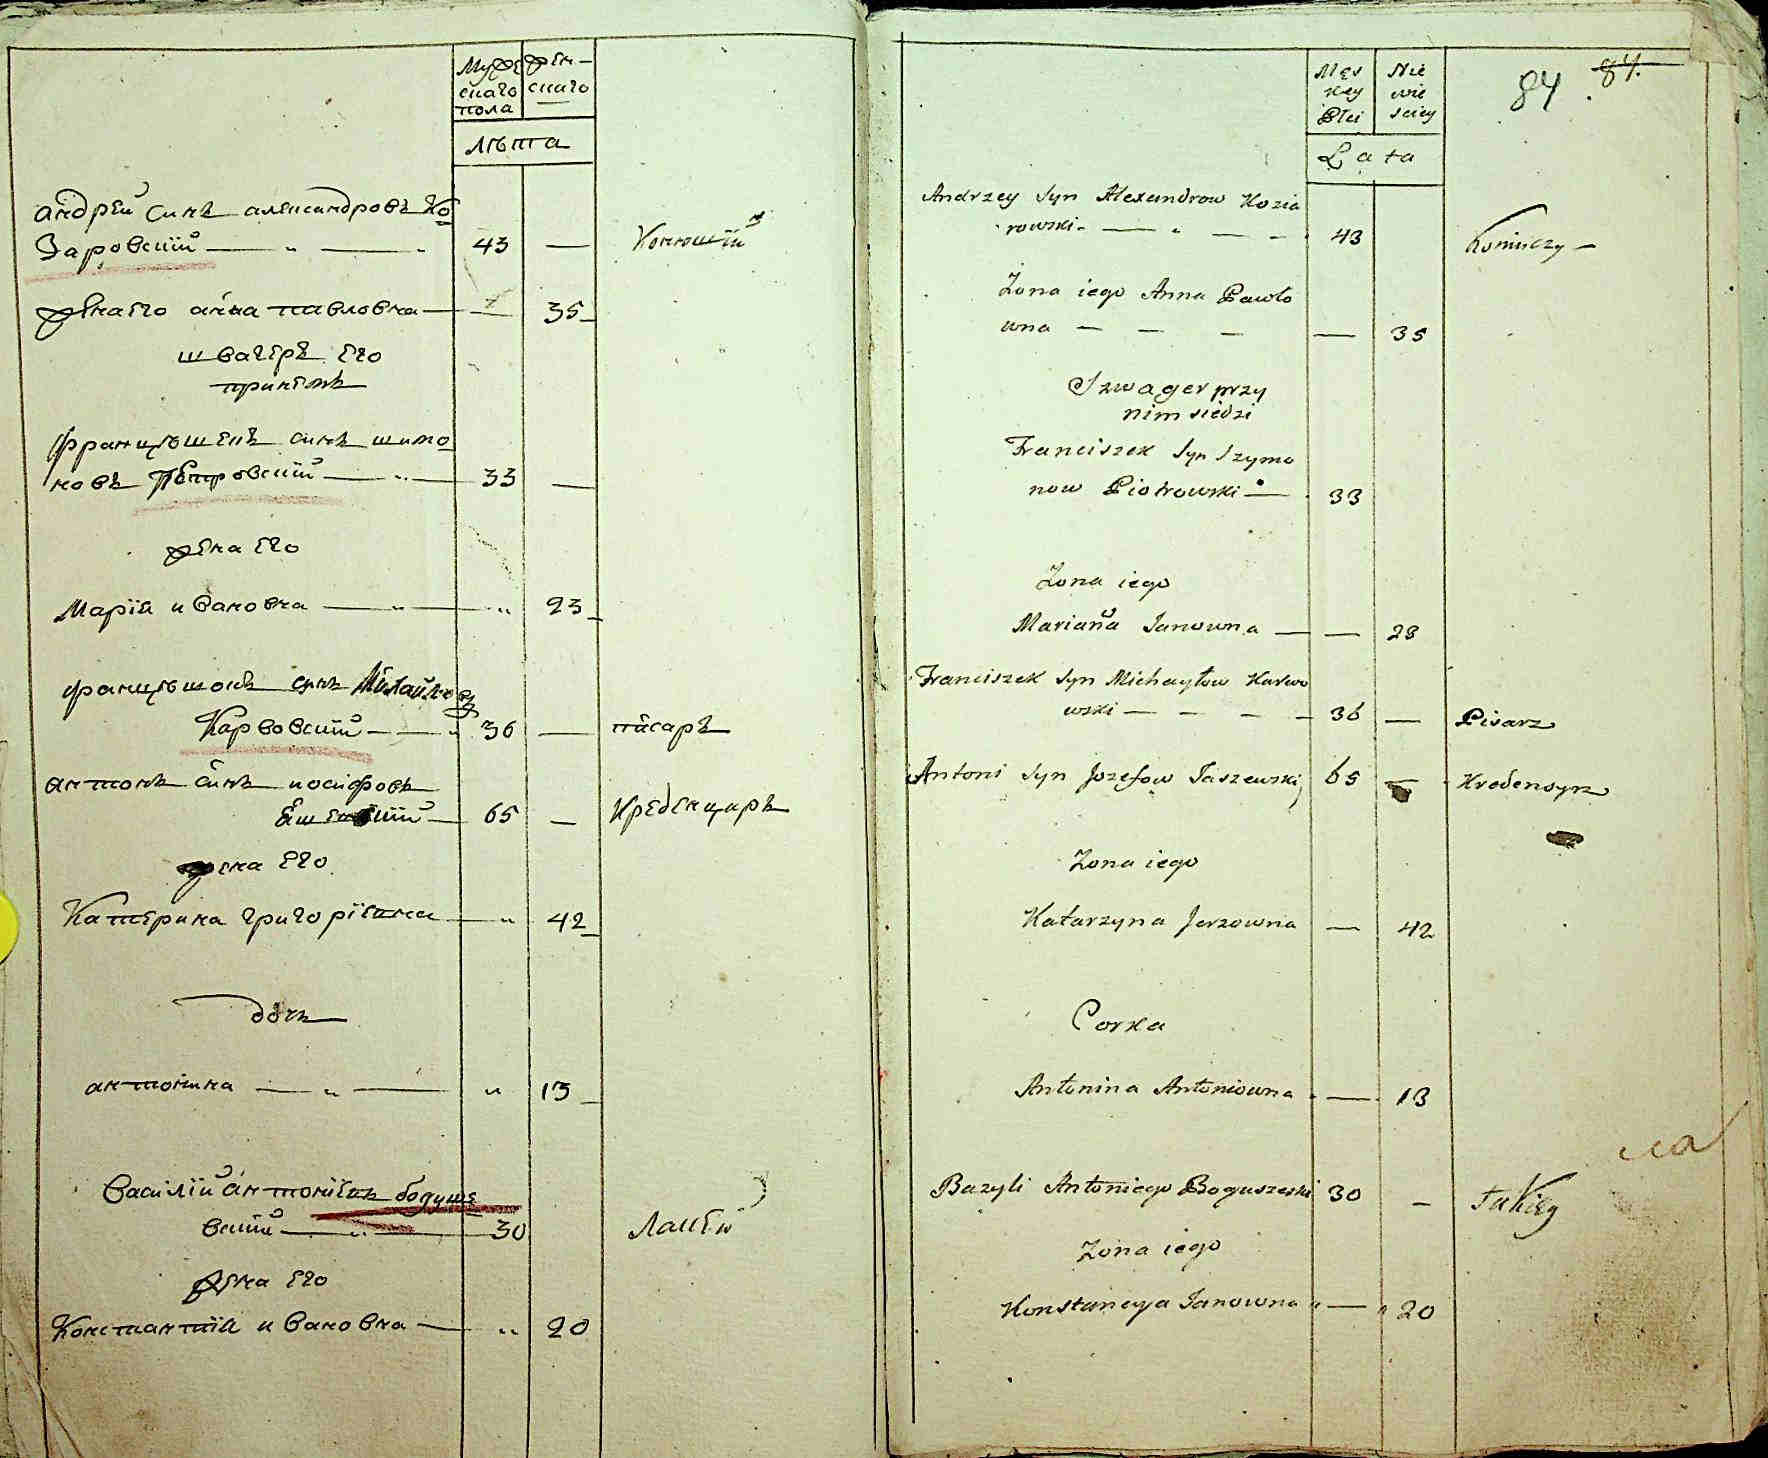 Мужескаго пола
женскаго
лѣта
андрей синъ александровъ Ко
Заровскій 43 — Конюшій
жена его анна павловна — 35
швагеръ его
при немъ
францѣшекъ синъ шимо
новъ Петровскій 33 —
жена его
Марія ивановна 23
францѣшокъ синъ Михайловъ
Карвовскій 36 — писаръ
антонъ синъ иосифовъ
65 — Креденцаръ
жена его
Катерина григоріевна 42
дочь
антонина 13
Василій антоніевъ богуше
вскій 30 Лакей
жена его
Константія ивановна 20
Męskey Płci
Niewiesciey
84 84.
Lata
Andrzey Syn Alexandrow Kozia
rowski 43 Koniuszy
Zona iego Anna Pawło
wna — 35
Szwager przy
nim siedzi
Franciszek Syn Szymo
now Piotrowski 33
Zona iego
Marianna Janowna — 23
Franciszek Syn Michayłow Karwo
wski 36 — Pisarz
Antoni Syn Jozefow Jaszewski 65 Kredensyrz
Zona iego
Katarzyna Jerzowna — 42
Corka
Antonina Antoniowna — 13
Bazyli Antoniego Boguszewski 30 — Lakiey
Zona iego
Konstancya Janowna — 20